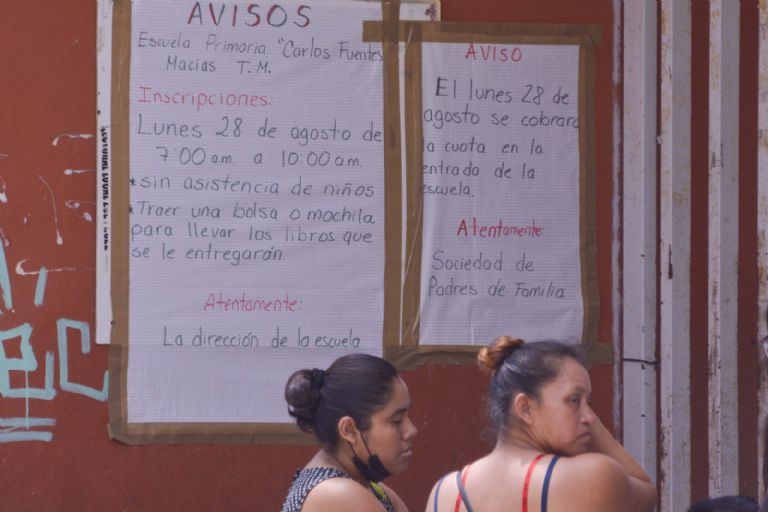 AVISOS
Escuela Primaria "Carlos Fuentes
Macias T. M.
Inscripciones:
Lunes 28 de agosto de
7:00 a.m. a 10:00 a.m.
*sin asistencia de niños
*Traer una bolsa o mochila
para llevar los libros que
se le entregarán
Atentamente:
La dirección de la escuela
AVISO
El lunes 28 de
agosto se cobrara
la cuota en la
entrada de la
escuela.
Atentamente:
Sociedad de
Padres de Familia